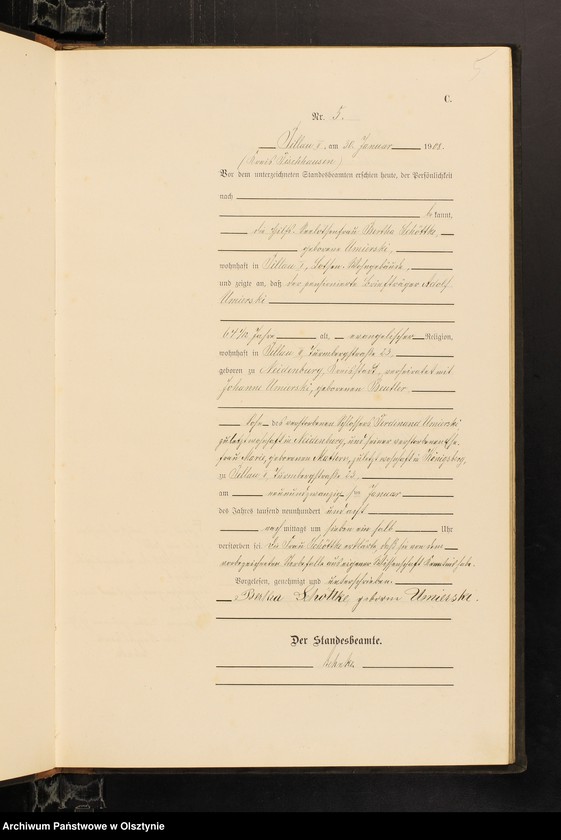 5
C.
Nr. 5.
Pillau I, am 30. Januar 1908.
(Kreis Fischhausen)
Vor dem unterzeichneten Standesbeamten erschien heute, der Persönlichkeit
nach
bekannt,
die Hilfs- Bertha Schöttke,
geborene Umierski,
wohnhaft in Pillau I, Lotsen-Wohngebäude,
und zeigte an, daß der pensionierte Briefträger Adolf
Umierski
Jahre alt, evangelischer Religion,
wohnhaft in Pillau I, Turmbergstraße 23,
geboren zu Neidenburg, Kreisstadt, verheiratet mit
Johanne Umierski, geborenen Beutler,
Sohn des verstorbenen Schlossers Ferdinand Umierski
zuletzt wohnhaft in Neidenburg, und seiner verstorbenen Ehe-
frau Marie, geborenen Mattern, zuletzt wohnhaft in Königsberg,
zu Pillau I, Turmbergstraße 23,
am neunundzwanzigsten Januar
des Jahres tausend neunhundert und acht
nachmittags um sieben ein halb Uhr
verstorben sei. Die Frau Schöttke erklärte, daß sie von dem
vorbezeichneten Sterbefalle aus eigener Wissenschaft Kenntnis habe.
Vorgelesen, genehmigt und unterschrieben.
Bertha Schöttke geborene Umierski.
Der Standesbeamte.
Archiwum Państwowe w Olsztynie